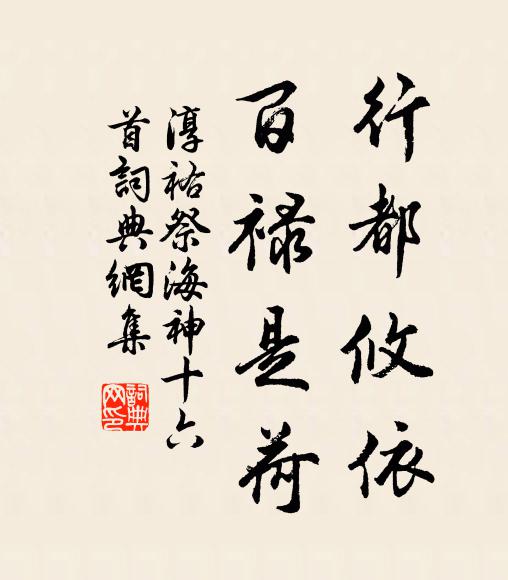 行都攸依
百禄是荷
淳祐祭海神十六
首詞典網集
詞典
网印